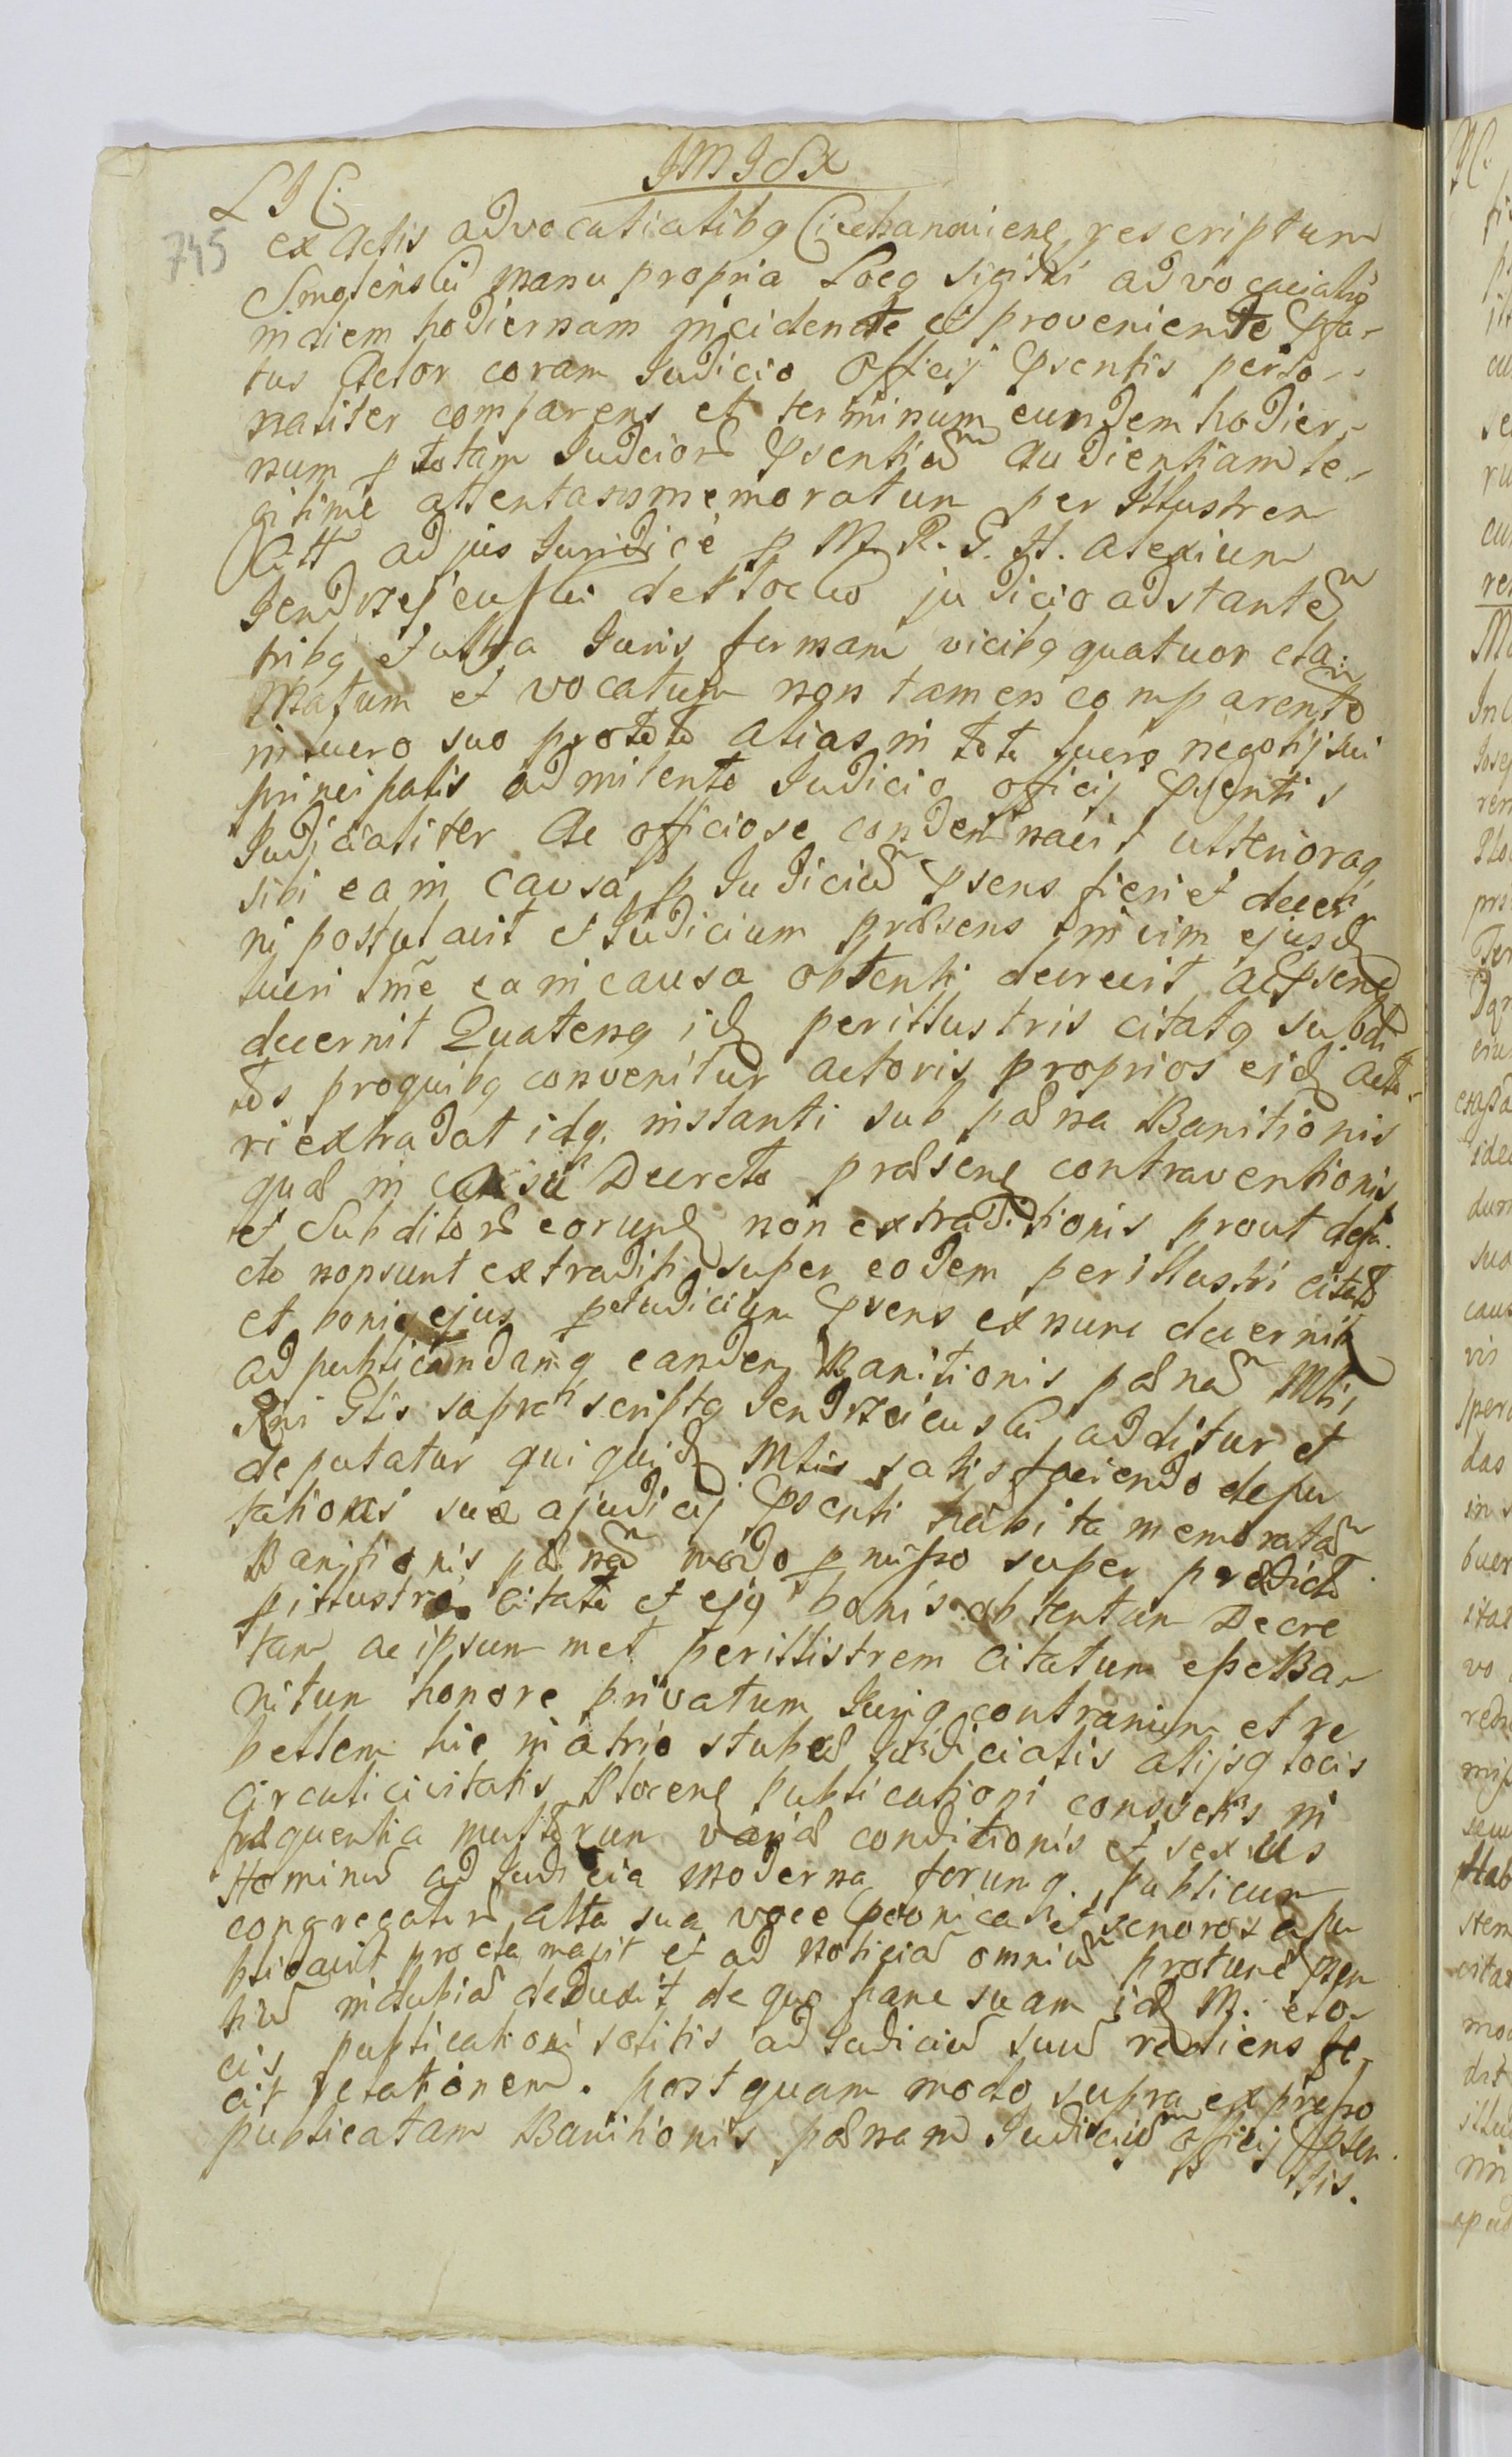 745
ex Actis advocatialibq Ciechanoviens rescriptum
manu propria Locq sigilli advocacialis
in diem hodiernam incidente et proveniente
tus Actor coram Judicio Officij psentis perso-
naliter comparens et terminum eundem hodier-
num p totam Audientiam le-
gitime attentasmemoratum per Illustrem
Citt ad jus Juridicè p M. R. G. H. Alexium
judicio adstante
tribq et ultra Juris formam vicibq quatuor cla-
matum et vocatum non tamen comparente
in lucro suo alias in toto lucro negotij sui
principalis admitente Judicio officij psentis
Judicialiter Ac officiose condemnavit ulterioraq
sibi ea in causa p Judiciu psens fieri et decer
ni postulavit et Judicium præsens in vim ejusd
lucri ea in causa obtenti decrevit acpsens
decernit Quatenq id perillustris citatq subdi
tos proquibq convenitur actoris proprios eid acto-
ri extradat idq. instanti sub pæna Banitionis
quæ in Casu Decreto præsens contraventionis
et Subditor eorund non extraditionis prout defa-
cto nonsunt extraditi super eodem perillustri citato
et bonis ejus p Judicium psens exnunc decernit
ad publicandamq eandem Banitionis pænã Mtis
Rni Gtis supra scriptq additur et
deputatur qui quid Mtis satisfaciendo depu
tationi suæ a judicij psenti habita memoratã
Banitionis pænã modo pmisso super prædicto
pillustre citato et ejq bonis obtentam Decre
tam ac ipsum met perillistrem citatum esse Ba-
nitum honore privatum Juriq contrarium et re
bellem hic in atrio stubæ Judicialis alijsq locis
circuli civitatis Plocens Publicationi consuetis in
frequentia multorum variæ conditionis et sexus
Hominu ad Judicia moderna forumq. Publicum
congregator alta sua voce et senorosa pu
blicavit proclamavit et ad noticiã omniũ protunc psen
tiu indubiã deduxit de quo hanc suam id M. elo-
cis publicationi solitis ad Judiciu suu rediens fe-
cit relationem. postquam modo supra expresso
publicatam Banitionis pænam Judiciu officij psen-
tis.